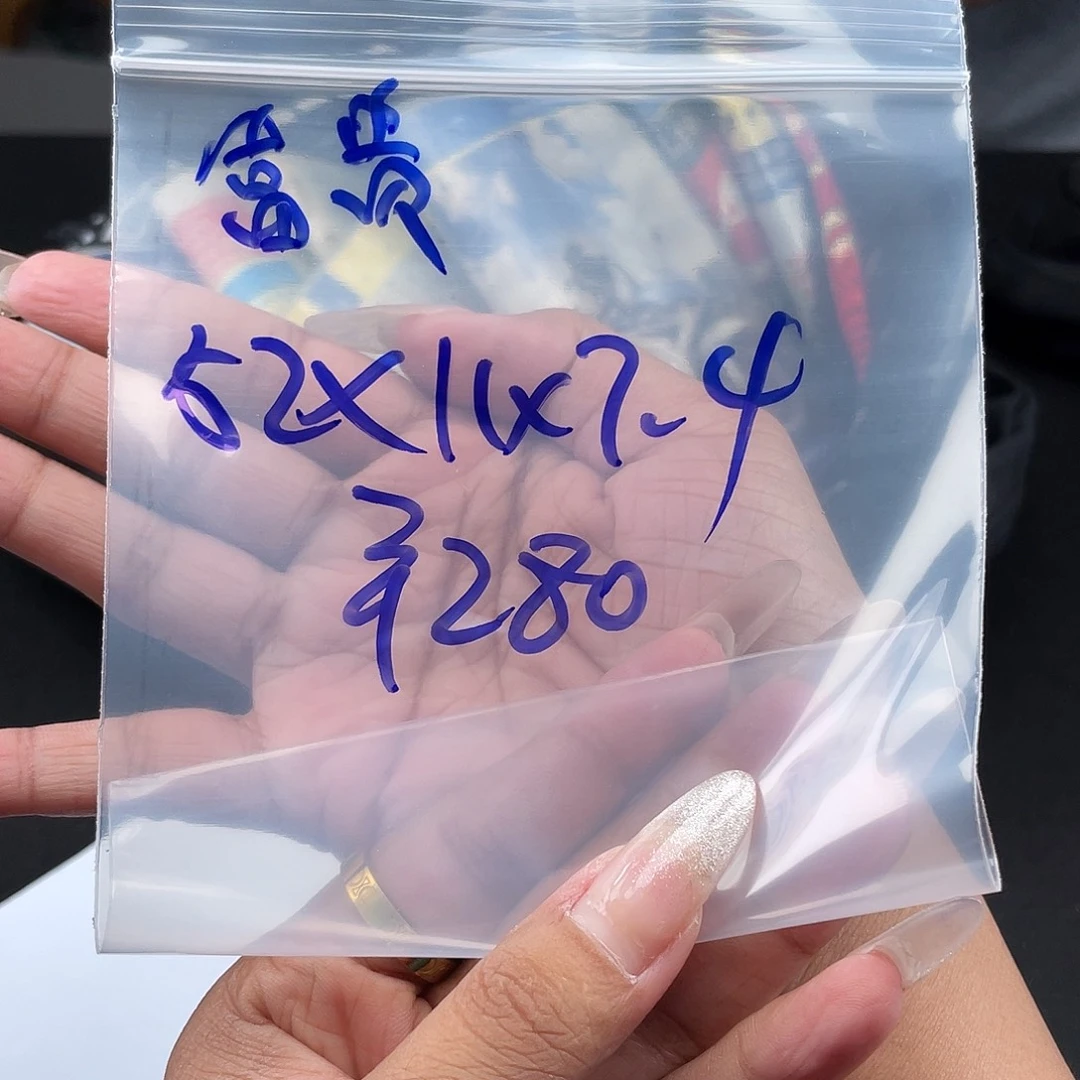 富贵
52x11x7.4
¥280